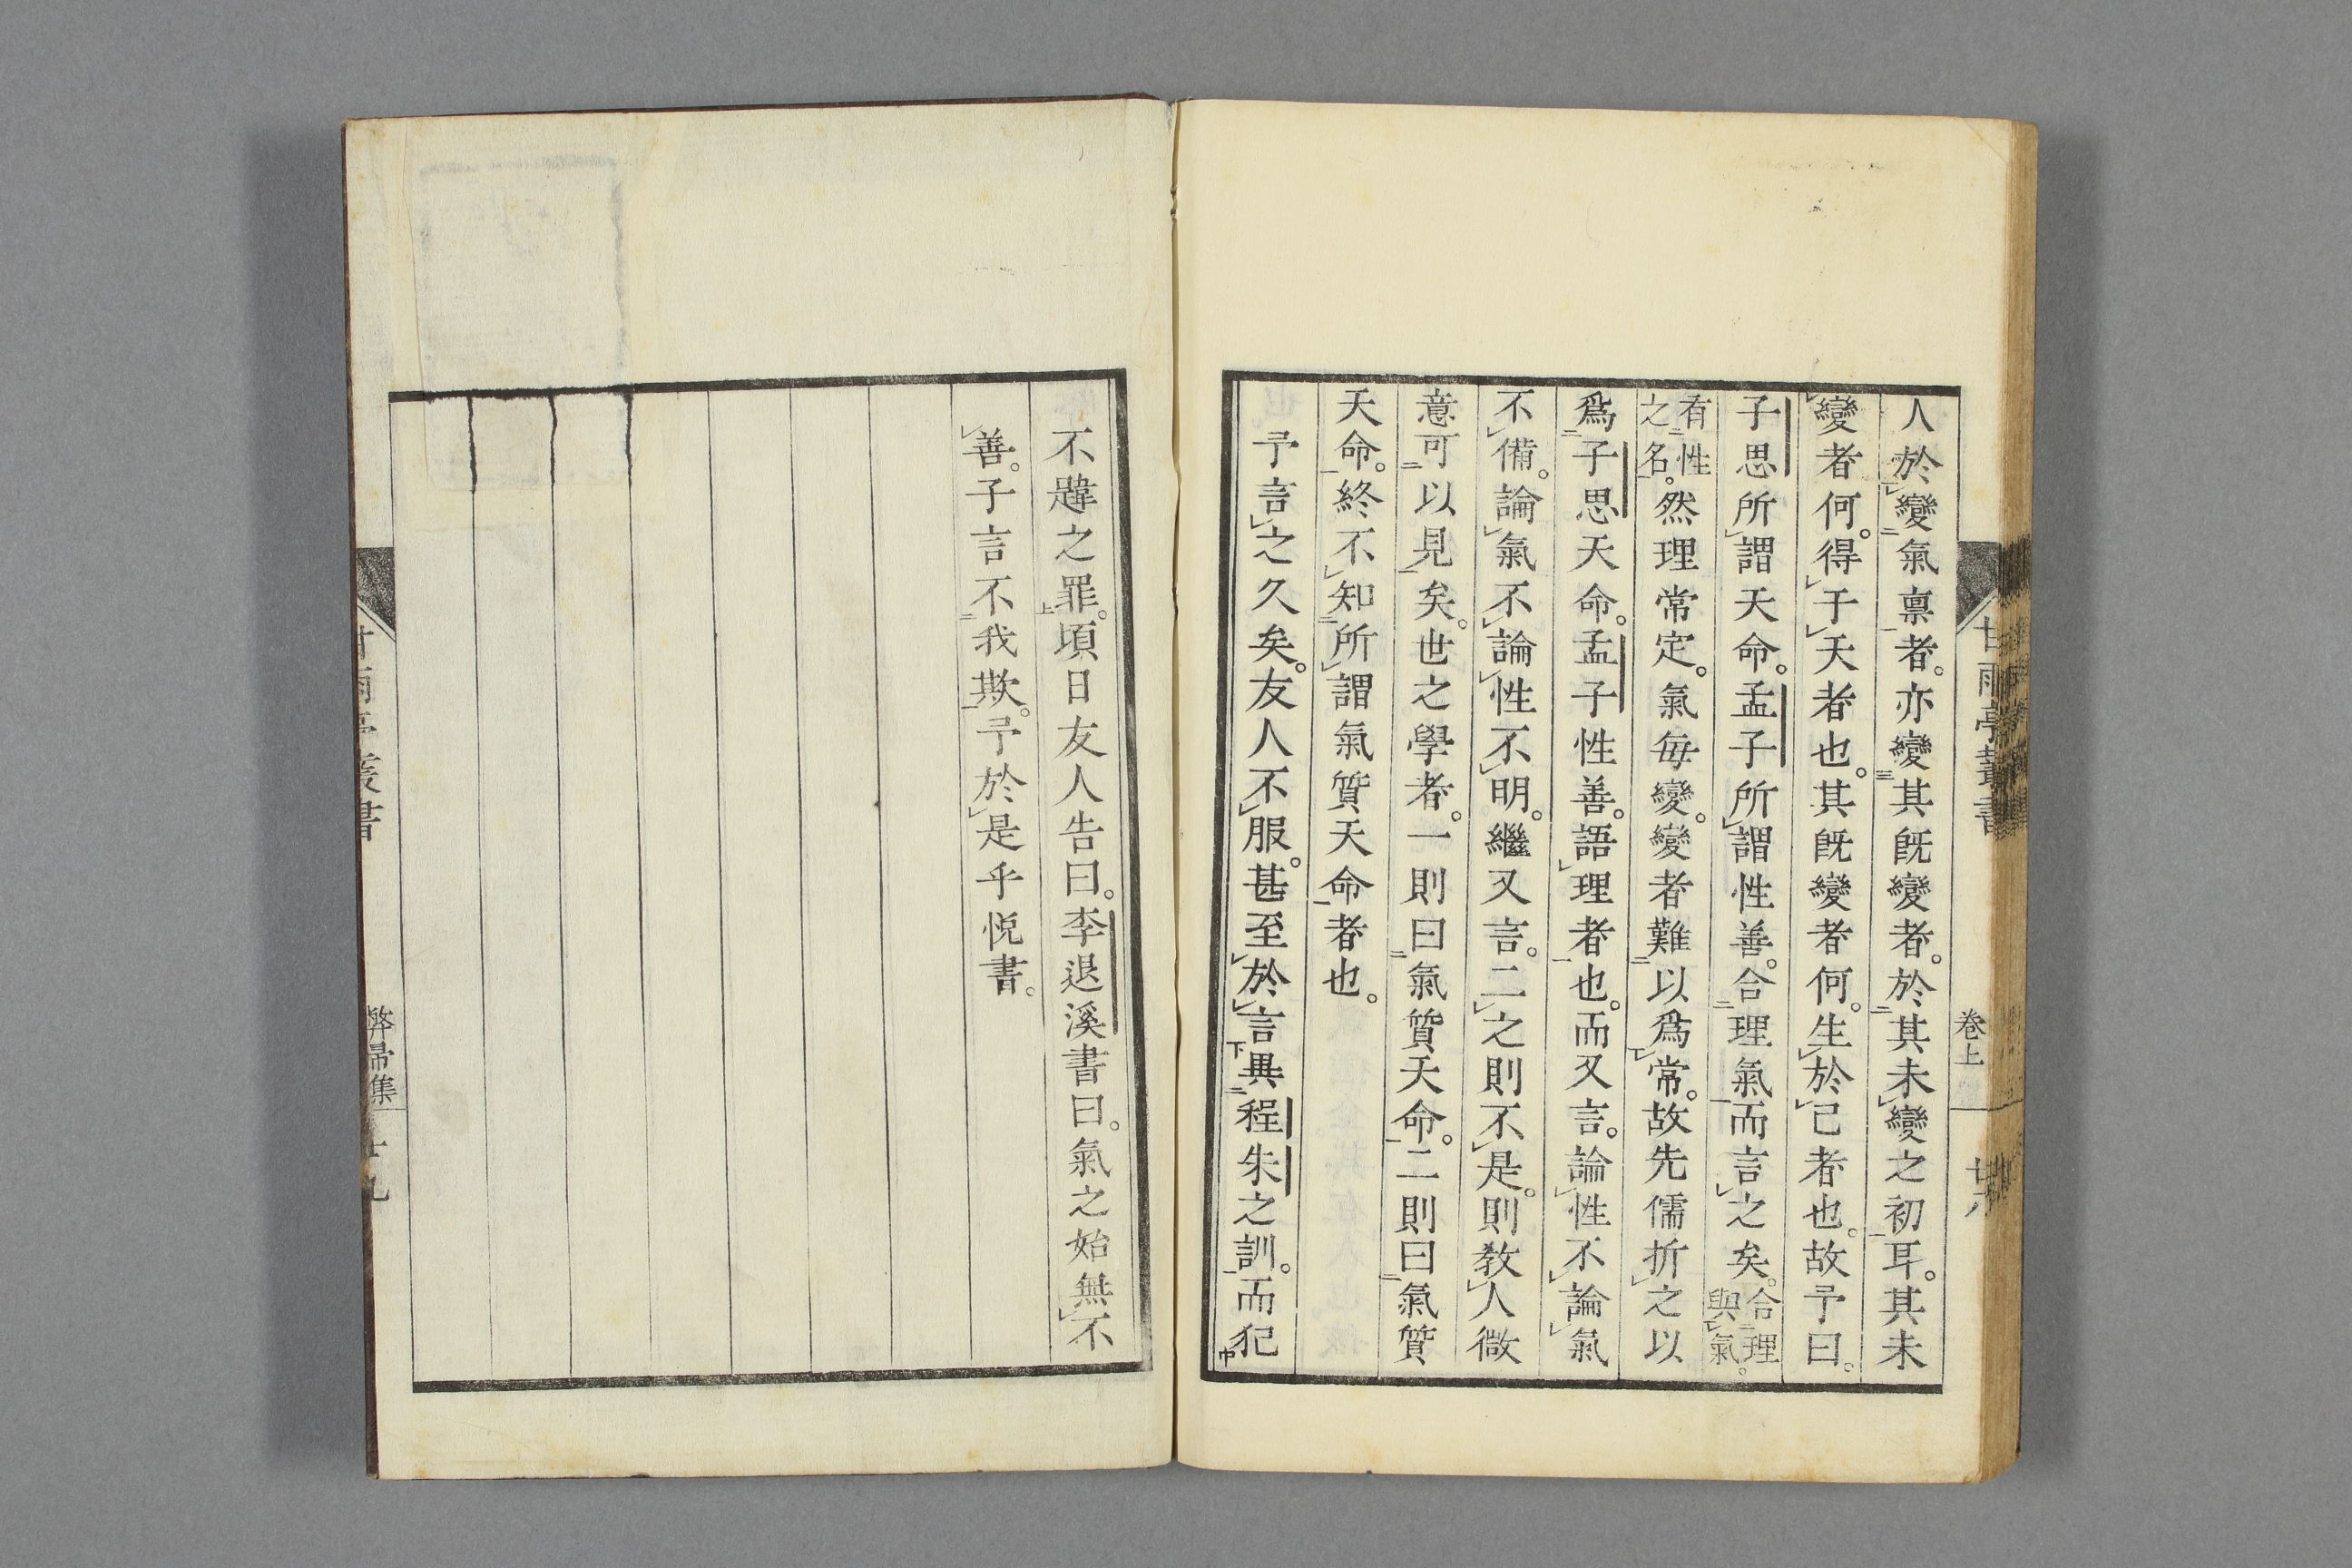 人於變氣禀者。亦變其既變者。於其未變之初耳。其未
變者何。得于天者也。其既變者何。生於己者也。故予曰。
子思所謂天命。孟子所謂性善。合理氣而言之矣。合理與氣。
有性之名。然理常定。氣毎變。變者難以爲常。故先儒折之以
爲子思天命。孟子性善。語理者也。而又言。論性不論氣
不備。論氣不論性不明。繼又言。二之則不是。則教人微
意可以見矣。世之學者。一則曰氣質天命。二則曰氣質
天命。終不知所謂氣質天命者也。
予言之久矣。友人不服。甚至於言異程朱之訓。而犯
不韙之罪。頃日友人告曰。李退溪書曰。氣之始無不
善。子言不我欺。予於是乎悦書。
甘雨亭叢書
卷上
廿八
甘雨亭叢書
弊帚集
廿九